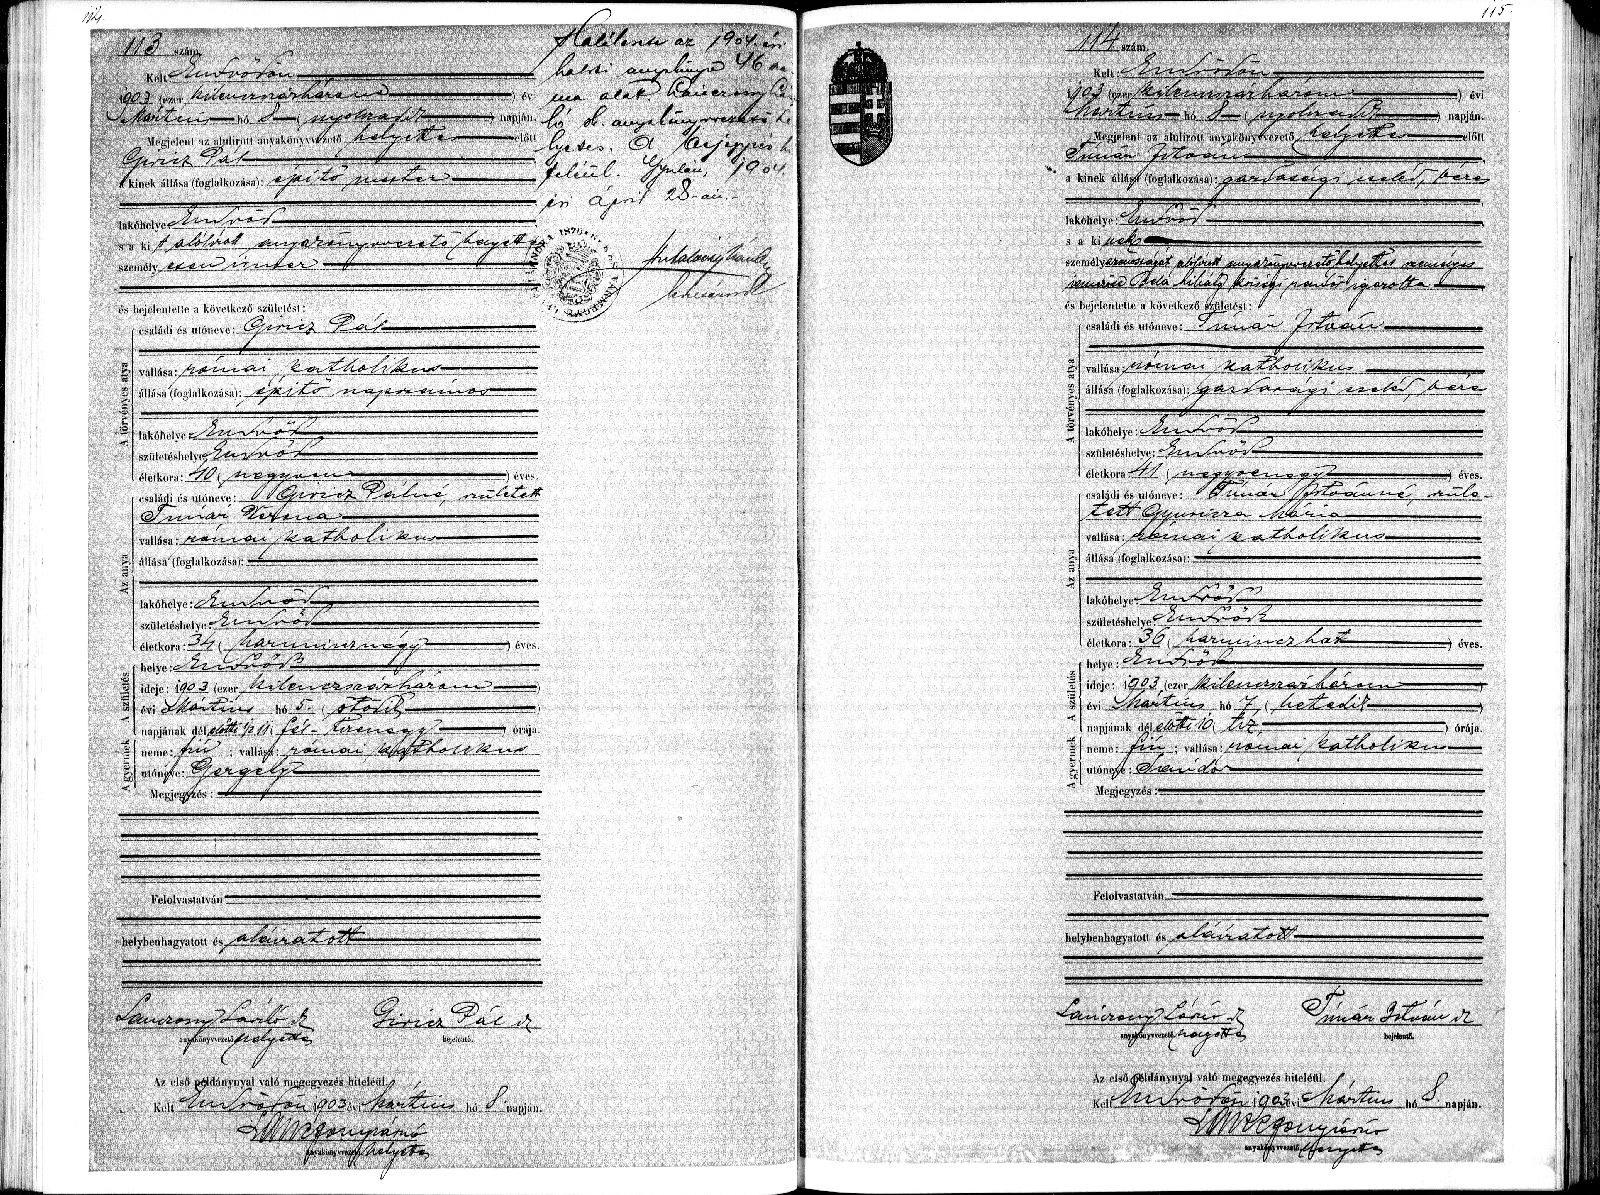 114
113 szám.
Kelt Endrődön
1903 (ezer kilenczszázhárom ) év
Mártius hó 8 ( nyolczadik ) napján.
Megjelent az alulirott anyakönyvvezető helyettes előtt
Giricz Pál
a kinek állása (foglalkozása): építő mester
lakóhelye Endrőd
s a ki t alólirott anyakönyvvezető helyettes
személy esen ismer
és bejelentette a következő születést:
A törvényes atya
családi és utóneve: Giricz Pál
vallása: római katholikus
állása (foglalkozása): építő napszámos
lakóhelye Endrőd
születéshelye Endrőd
életkora: 40 ( negyven ) éves.
Az anya
családi és utóneve: Giricz Pálné, született
Timár Verona
vallása: római katholikus
állása (foglalkozása):
lakóhelye: Endrőd
születéshelye: Endrőd
életkora: 34 ( harmincznégy ) éves.
A születés
helye: Endrőd
ideje: 1903 (ezer kilenczszázhárom )
évi Mártius hó 5. ( ötödik )
napjának dél előtti 1/2 11 ( fél-tizenegy ) órája.
A gyermek
neme: fiú ; vallása: római katholikus
utóneve: Gergely
Megjegyzés:
Felolvastatván
helybenhagyatott és aláiratott
Lánczony László Giricz Pál
anyakönyvvezető helyettes bejelentő.
Az első példánynyal való megegyezés hiteléül.
Kelt Endrődön 1903 évi Mártius hó 8. napján.
anyakönyvvezető helyettes
Halálesete az 1904. évi
halotti anyakönyv 46
alatt.
A bejegyzés
feléül. Gyulán, 1904.
évi április 28-án.
115
114 szám.
Kelt: Endrődön
1903 (ezer kilenczszázhárom ) évi
Mártius hó 8 ( nyolczadik ) napján.
Megjelent az alulirott anyakönyvvezető helyettes előtt
Timár István
a kinek állása (foglalkozása): gazdasági cseléd, béres
lakóhelye: Endrőd
s a ki nek
személy azonosságát alólirott anyakönyvvezető helyettes személyes
ismerőse Béla Mihály községi rendőr igazolta
és bejelentette a következő születést:
A törvényes atya
családi és utóneve: Timár István
vallása: római katholikus
állása (foglalkozása): gazdasági cseléd, béres
lakóhelye: Endrőd
születéshelye: Endrőd
életkora 41 ( negyvenegy ) éves.
Az anya
családi és utóneve: Timár Istvánné, szüle-
tett Gyuricza Mária
vallása: római katholikus
állása (foglalkozása):
lakóhelye: Endrőd
születéshelye Endrőd
életkora: 36 ( harminczhat ) éves.
A születés
helye: Endrőd
ideje: 1903 (ezer kilenczszázhárom )
évi Mártius hó 7. ( hetedik )
napjának dél előtti 10 ( tiz ) órája.
A gyermek
neme: fiú ; vallása: római katholikus
utóneve: Sándor
Megjegyzés:
Felolvastatván
helybenhagyatott és aláiratott
Lánczony László Timár István
anyakönyvvezető helyettes bejelentő.
Az első példánynyal való megegyezés hiteléül.
Kelt Endrődön 1903 évi Mártius hó 8. napján.
anyakönyvvezető helyettes